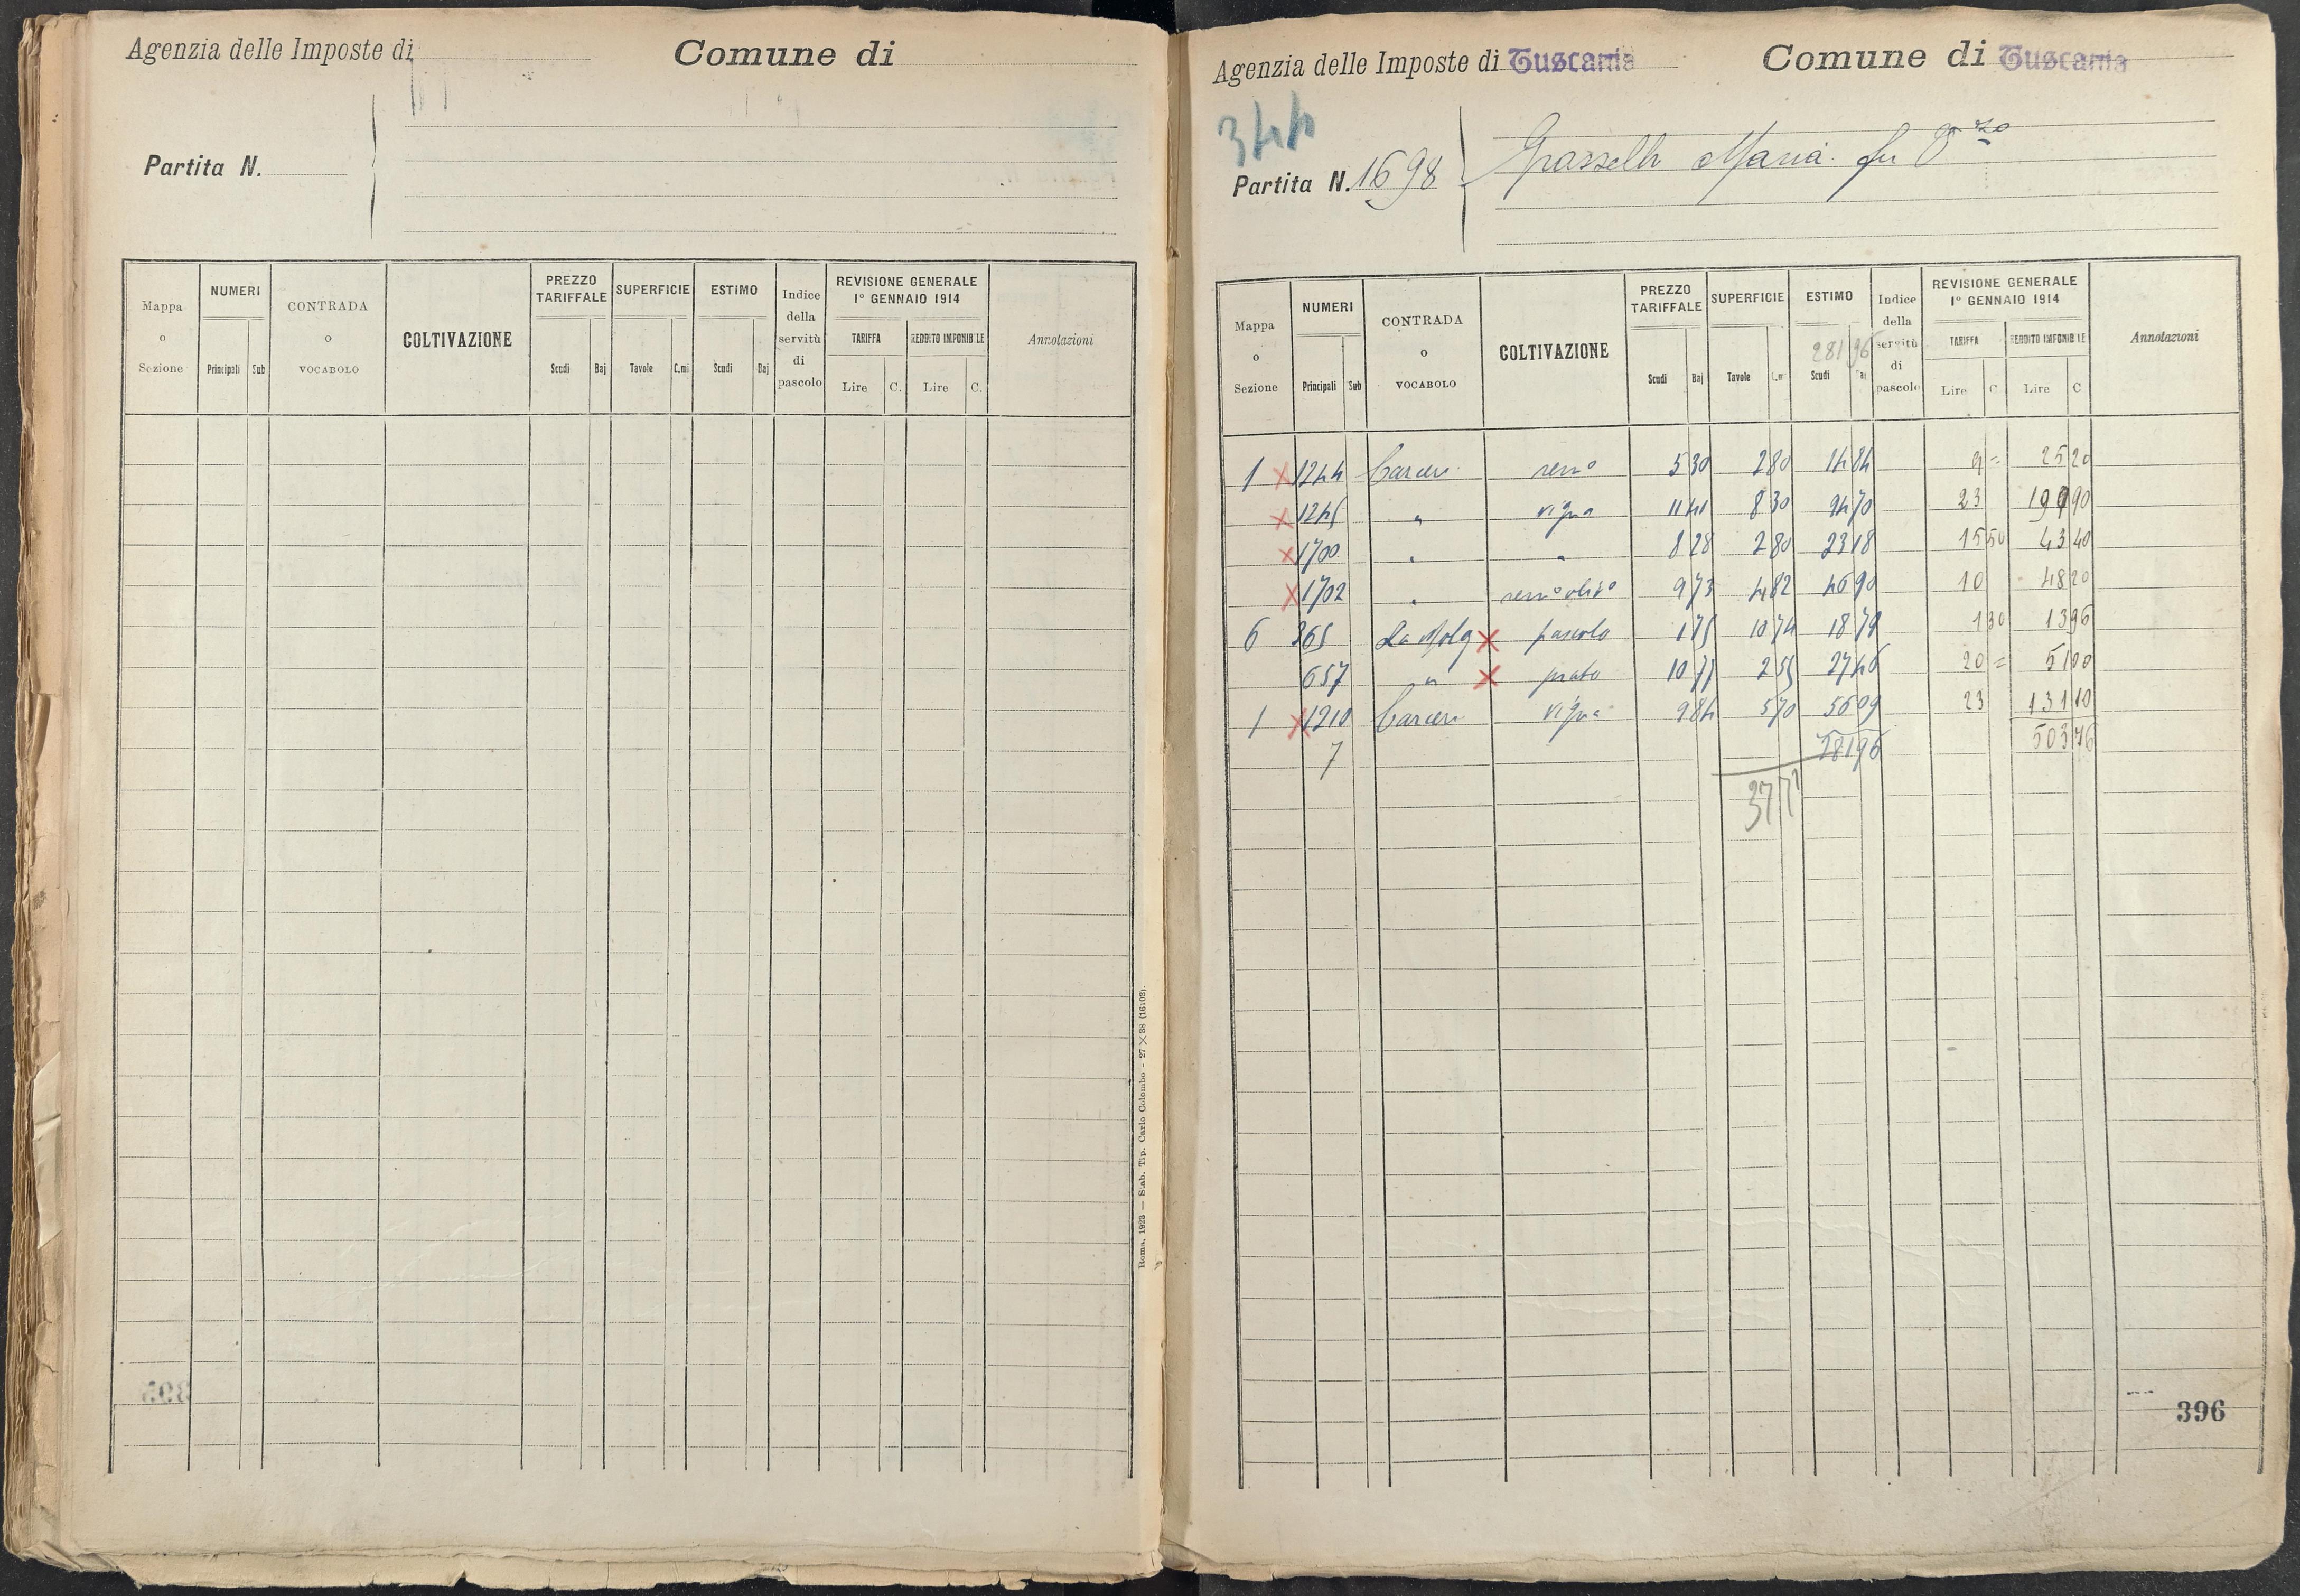 Agenzia delle Imposte di
Comune di
Partita N.
Mappa o Sezione
NUMERI
Principali Sub
CONTRADA o VOCABOLO
COLTIVAZIONE
PREZZO TARIFFALE
Scudi Baj
SUPERFICIE
Tavole C.mi
ESTIMO
Scudi Baj
Indice della servitù di pascolo
REVISIONE GENERALE
1° GENNAIO 1914
TARIFFA
Lire C.
REDDITO IMPONIBILE
Lire C.
Annotazioni
Roma, 1923 — Stab. Tip. Carlo Colombo - 27 × 38 (16102).
Agenzia delle Imposte di Tuscania
Comune di Tuscania
344
Partita N. 1698
Grasselli Maria fu
Mappa o Sezione
NUMERI
Principali Sub
CONTRADA o VOCABOLO
COLTIVAZIONE
PREZZO TARIFFALE
Scudi Baj
SUPERFICIE
Tavole C.mi
ESTIMO
281 96
Scudi Baj
Indice della servitù di pascolo
REVISIONE GENERALE
1° GENNAIO 1914
TARIFFA
Lire C.
REDDITO IMPONIBILE
Lire C
Annotazioni
1 x 1244 Carceri semo 5 30 2 80 14 84 9 = 25 20
x 1245 " vigna 11 41 8 30 94 70 23 190 90
x 1700 " " 8 28 2 80 23 18 15 50 43 40
x 1702 " semo olivo 9 73 4 82 46 90 10 48 20
6 365 La Mola x pascolo 1 75 10 74 18 79 1 30 13 96
657 " x prato 10 77 2 55 27 46 20 = 51 00
1 x 1210 Carceri vigna 9 84 5 70 56 09 23 131 10
7 281 96 503 76
37 71
396